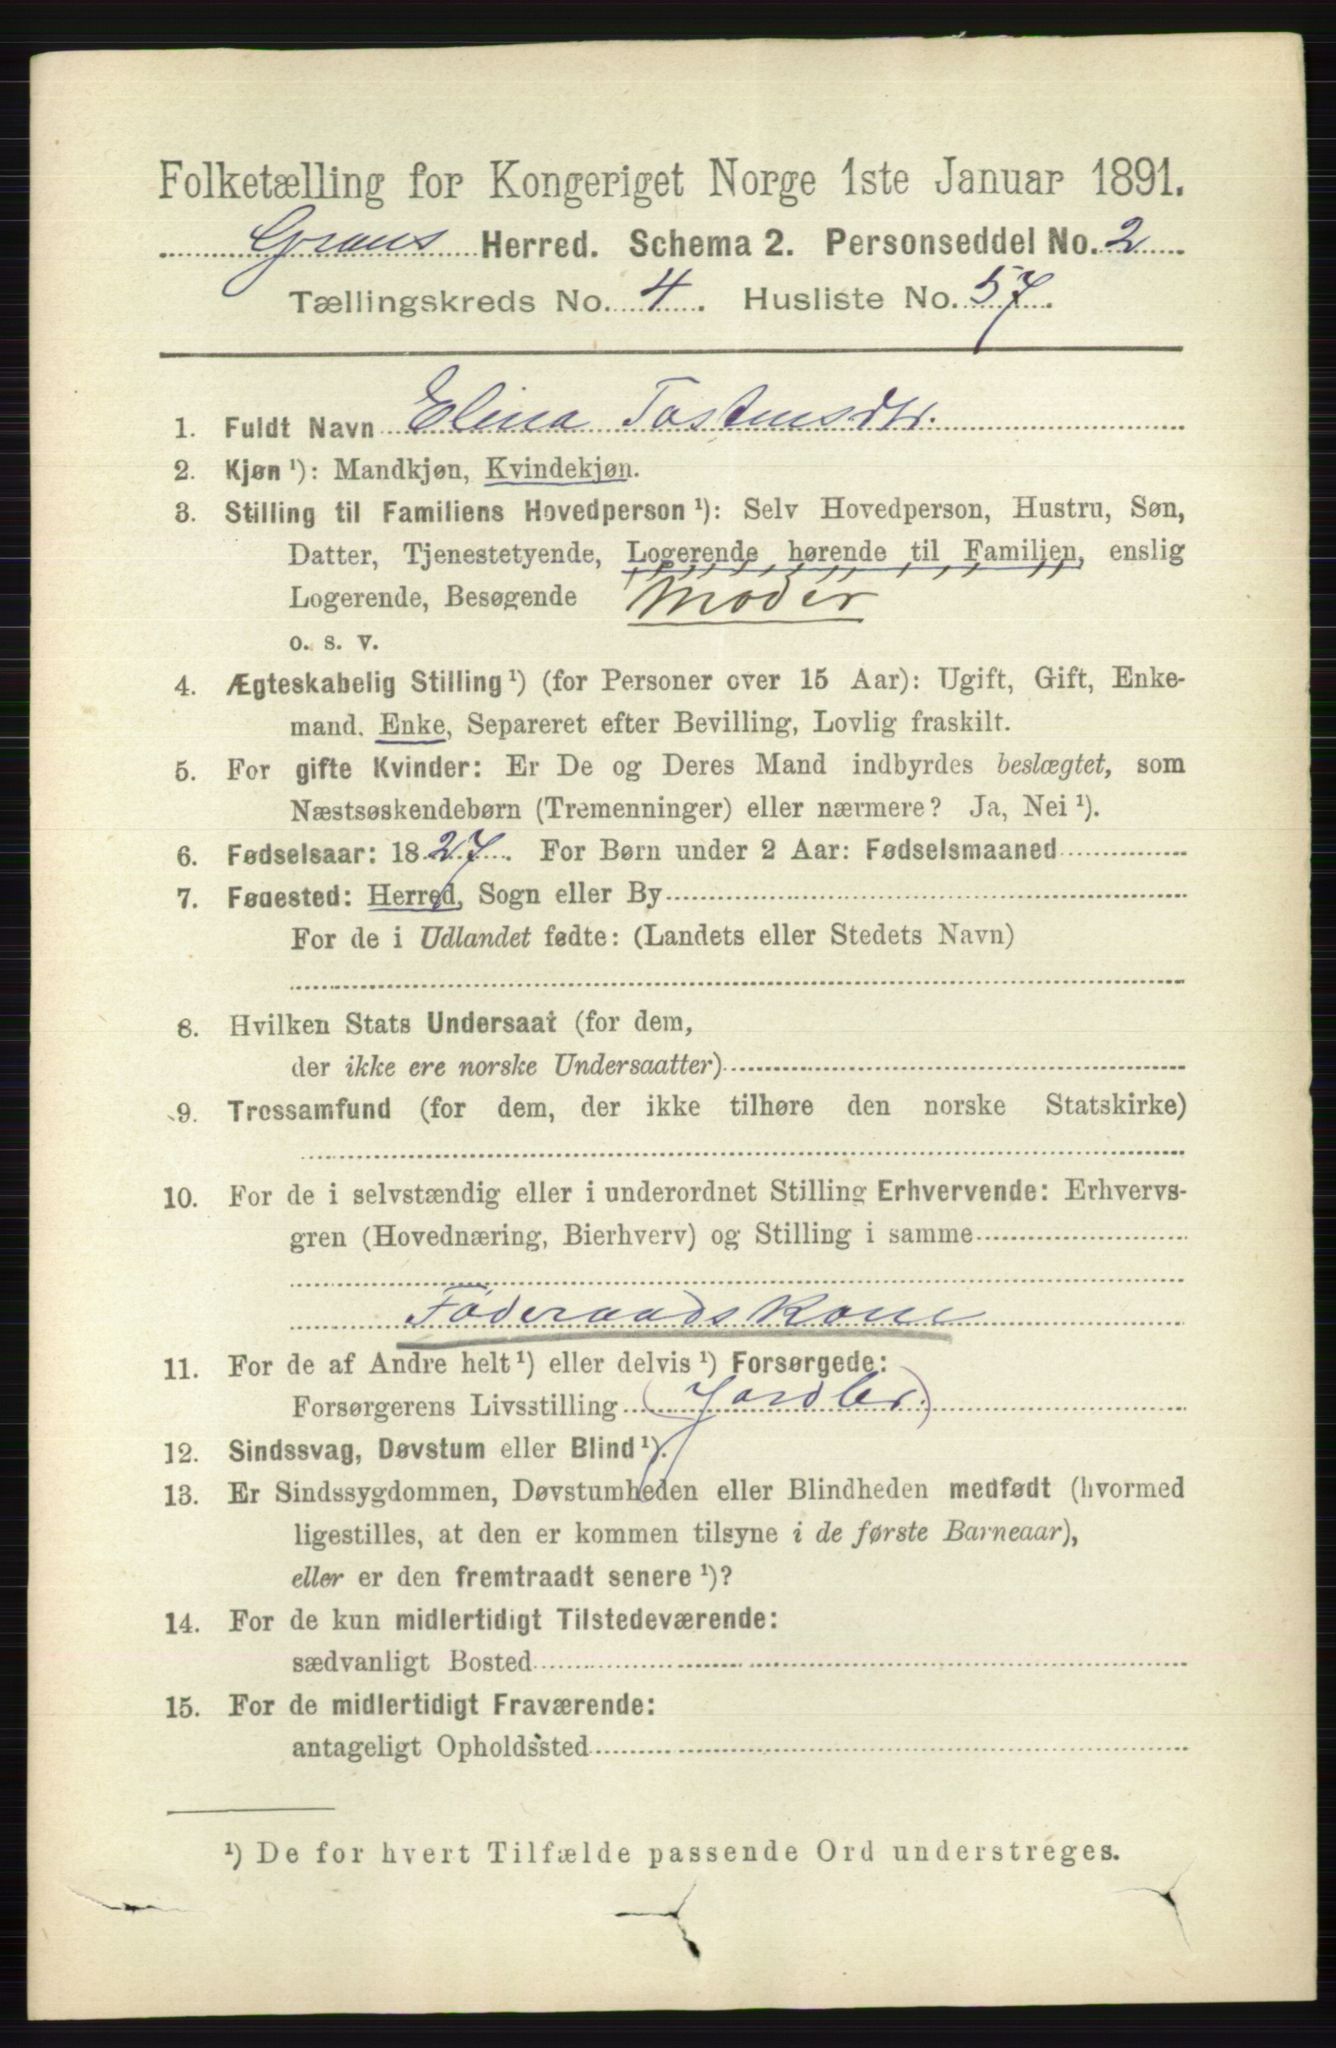 Folketælling for Kongeriget Norge 1ste Januar 1891.
Grans Herred. Schema 2. Personseddel No. 2
Tællingskreds No. 4. Husliste No. 57.
1. Fuldt Navn Elina Tostensdtr.
2. Kjøn ¹): Mandkjøn, Kvindekjøn.
3. Stilling til Familiens Hovedperson ¹): Selv Hovedperson, Hustru, Søn,
Datter, Tjenestetyende, Logerende hørende til Familien, enslig
Logerende, Besøgende Moder
o. s. v.
4. Ægteskabelig Stilling ¹) (for Personer over 15 Aar): Ugift, Gift, Enke-
mand, Enke, Separeret efter Bevilling, Lovlig fraskilt.
5. For gifte Kvinder: Er De og Deres Mand indbyrdes beslægtet, som
Næstsøskendebørn (Tremenninger) eller nærmere? Ja, Nei ¹).
6. Fødselsaar: 1827. For Børn under 2 Aar: Fødselsmaaned
7. Fødested: Herred, Sogn eller By
For de i Udlandet fødte: (Landets eller Stedets Navn)
8. Hvilken Stats Undersaat (for dem,
der ikke ere norske Undersaatter)
9. Trossamfund (for dem, der ikke tilhøre den norske Statskirke)
10. For de i selvstændig eller i underordnet Stilling Erhvervende: Erhvervs-
gren (Hovednæring, Bierhverv) og Stilling i samme
Føderaadskone
11. For de af Andre helt ¹) eller delvis ¹) Forsørgede:
Forsørgerens Livsstilling (Jordbr.)
12. Sindssvag, Døvstum eller Blind ¹).
13. Er Sindssygdommen, Døvstumheden eller Blindheden medfødt (hvormed
ligestilles, at den er kommen tilsyne i de første Barneaar),
eller er den fremtraadt senere ¹)?
14. For de kun midlertidigt Tilstedeværende:
sædvanligt Bosted
15. For de midlertidigt Fraværende:
antageligt Opholdssted
¹) De for hvert Tilfælde passende Ord understreges.